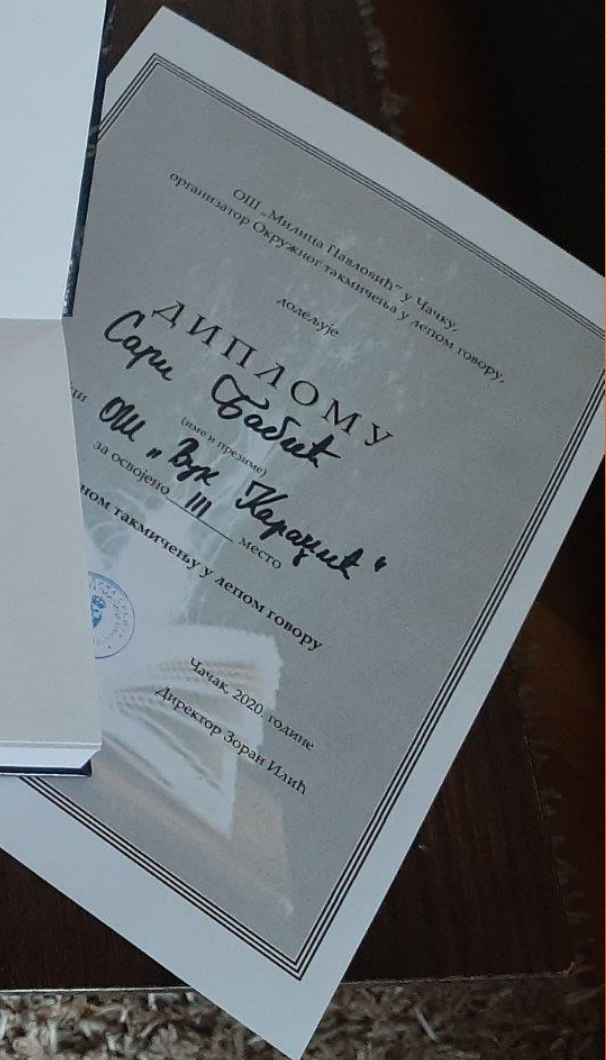 ОШ „Милица Павловић" у Чачку,
организатор Окружног такмичења у лепом говору,
додељује
ДИПЛОМУ
Сари Бабић
(име и презиме)
ОШ „Вук Караџић"
за освојено III место
такмичењу у лепом говору
Чачак, 2020. године
Директор Зоран Илић